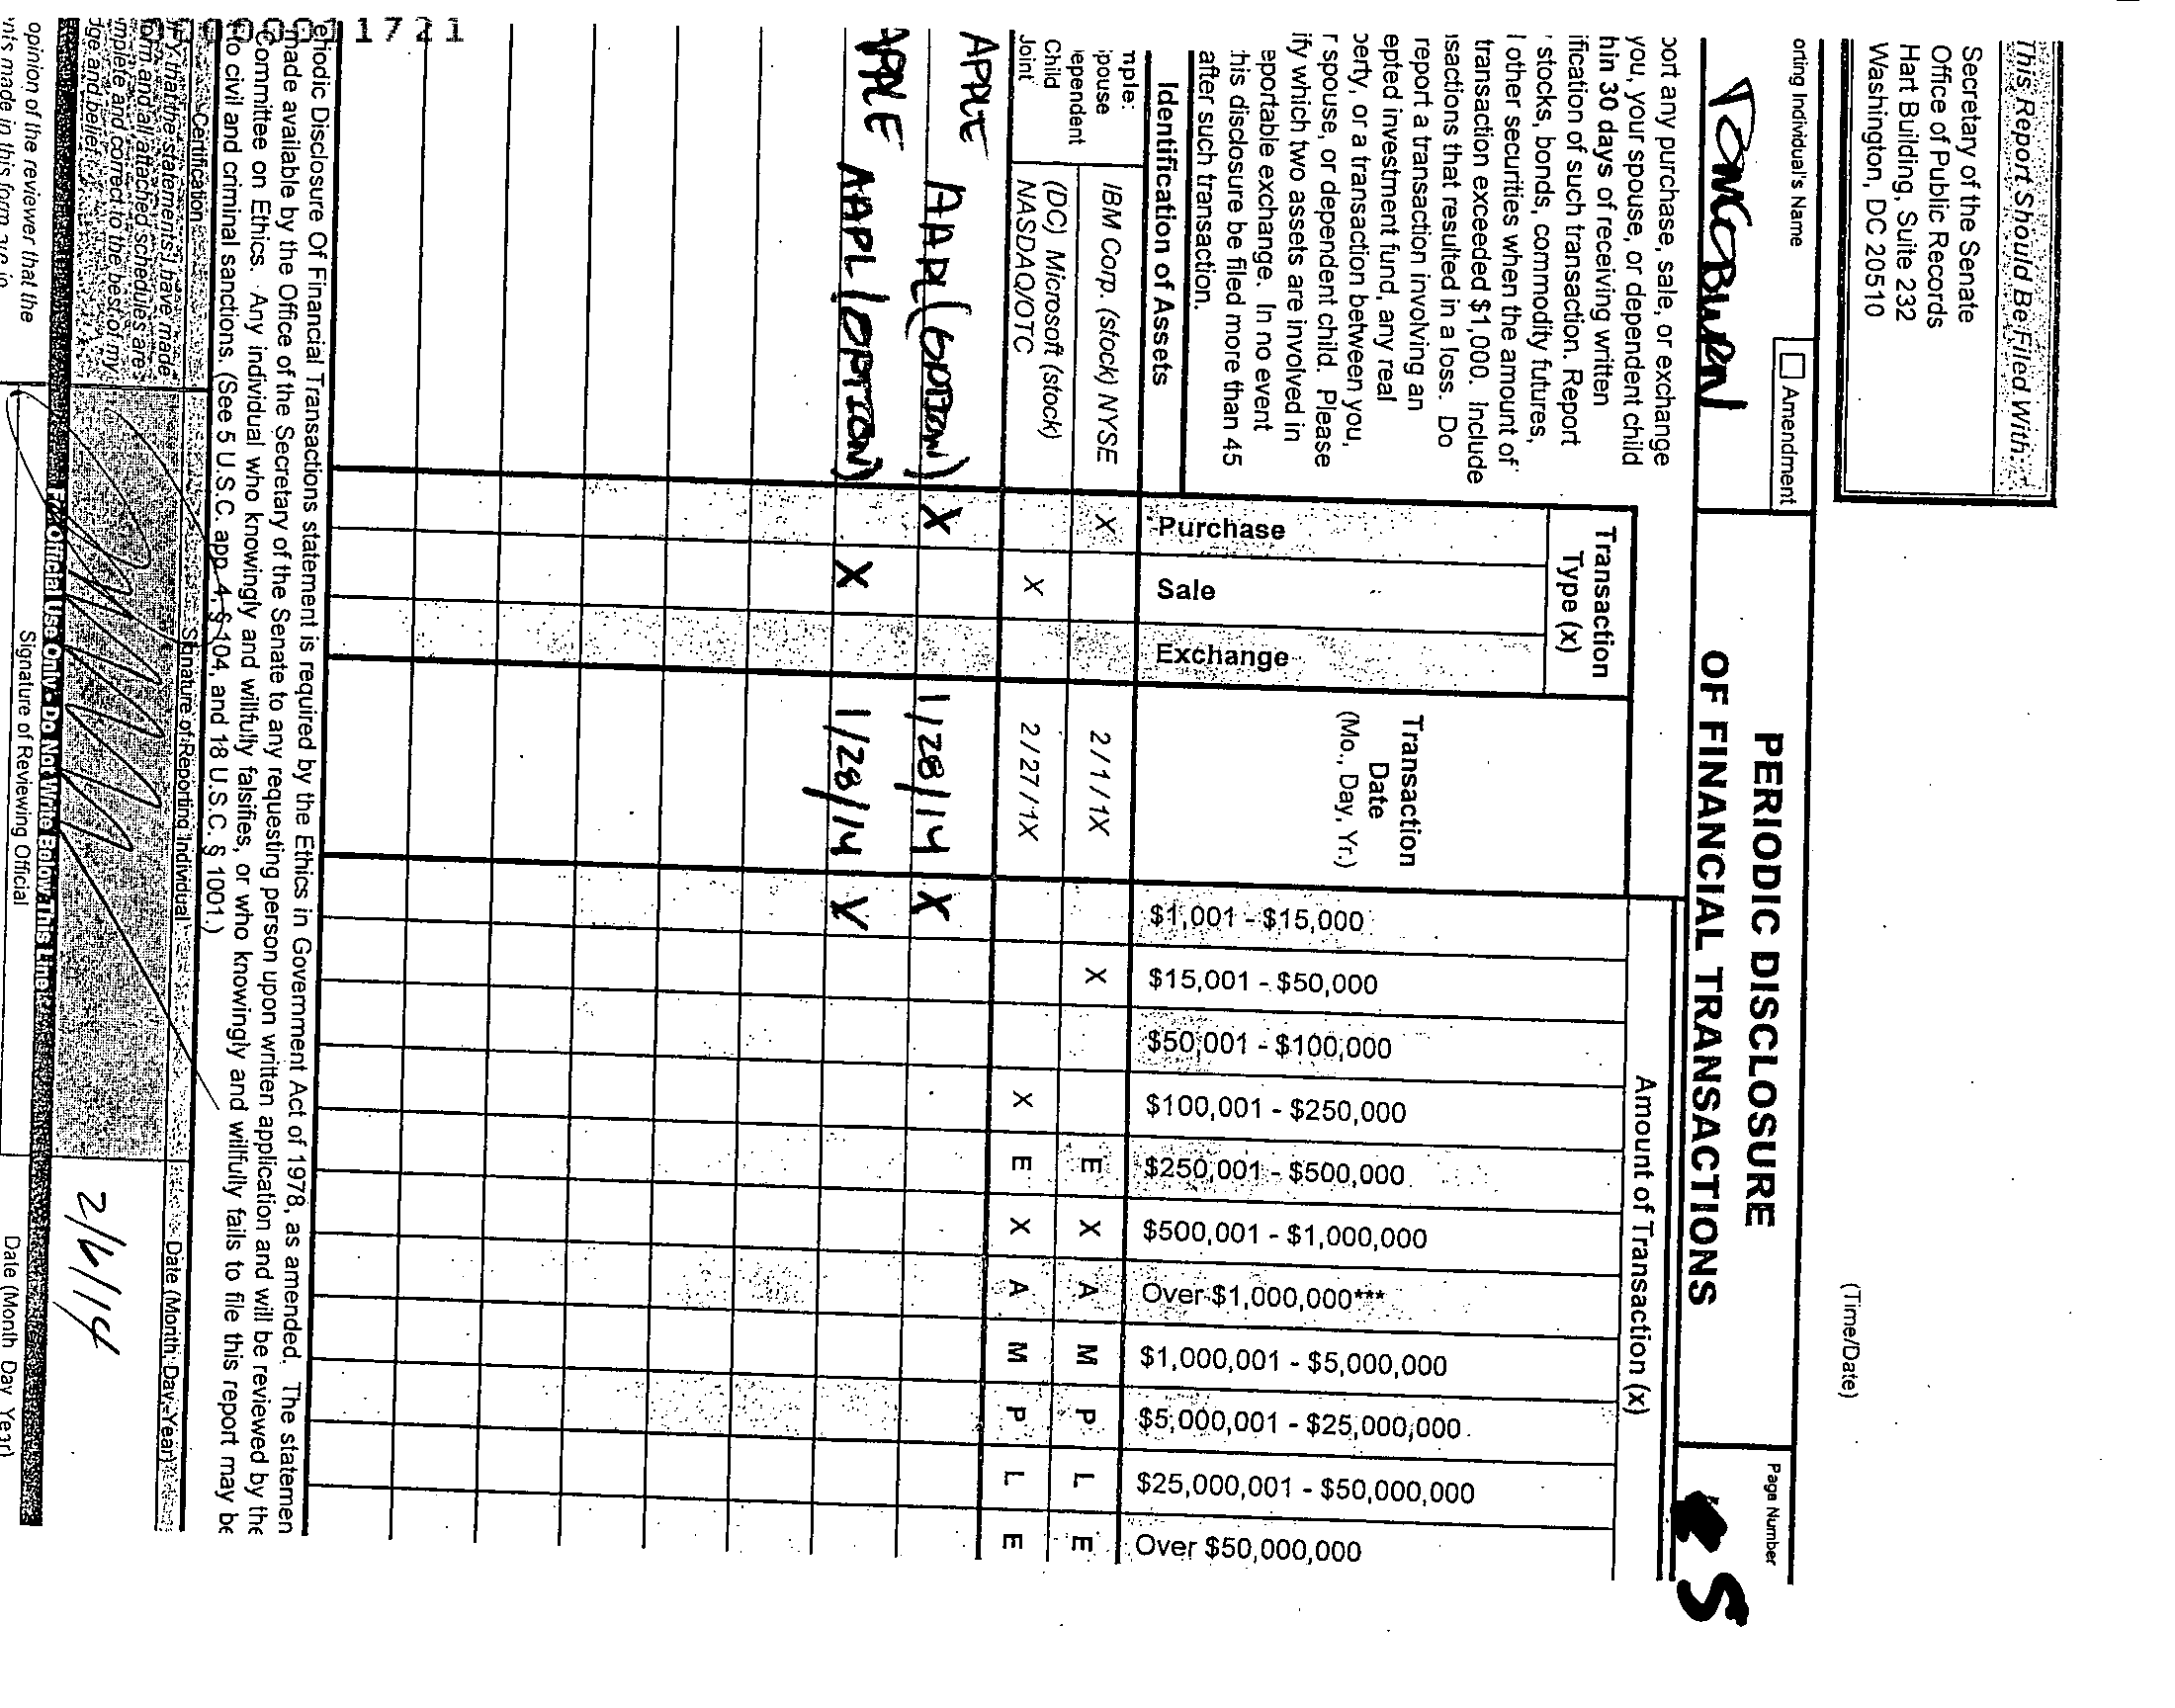 This Report Should Be Filed With:
Secretary of the Senate
Office of Public Records
Hart Building, Suite 232
Washington, DC 20510
(Time/Date)
orting Individual's Name
Amendment
PERIODIC DISCLOSURE
OF FINANCIAL TRANSACTIONS
Page Number
5
port any purchase, sale, or exchange
you, your spouse, or dependent child
hin 30 days of receiving written
ification of such transaction. Report
stocks, bonds, commodity futures,
l other securities when the amount of
transaction exceeded $1,000. Include
nsactions that resulted in a loss. Do
report a transaction involving an
epted investment fund, any real
perty, or a transaction between you,
r spouse, or dependent child. Please
ify which two assets are involved in
eportable exchange. In no event
this disclosure be filed more than 45
after such transaction.
Identification of Assets
Transaction
Type (x)
Purchase
Sale
Exchange
Transaction
Date
(Mo., Day, Yr.)
Amount of Transaction (x)
$1,001 - $15,000
$15,001 - $50,000
$50,001 - $100,000
$100,001 - $250,000
$250,001 - $500,000
$500,001 - $1,000,000
Over $1,000,000***
$1,000,001 - $5,000,000
$5,000,001 - $25,000,000
$25,000,001 - $50,000,000
Over $50,000,000
mple:
pouse
ependent
Child
Joint
IBM Corp. (stock) NYSE X 2/1/1X X E X A M P L E
(DC) Microsoft (stock)
NASDAQ/OTC X 2/27/1X X E X A M P L E
APPLE AAPL (OPTION) X 1/28/14 X
APPLE AAPL (OPTION) X 1/28/14 X
eriodic Disclosure Of Financial Transactions statement is required by the Ethics in Government Act of 1978, as amended. The statemen
made available by the Office of the Secretary of the Senate to any requesting person upon written application and will be reviewed by the
Committee on Ethics. Any individual who knowingly and willfully falsifies, or who knowingly and willfully fails to file this report may be
to civil and criminal sanctions. (See 5 U.S.C. app. 4, § 104, and 18 U.S.C. § 1001.)
Certification
Signature of Reporting Individual
Date (Month, Day, Year)
IFY that the statements I have made
form and all attached schedules are
mplete and correct to the best of my
dge and belief.
2/6/14
For Official Use Only - Do Not Write Below This Line
opinion of the reviewer that the
nts made in this form are in
Signature of Reviewing Official
Date (Month Day Year)
1721